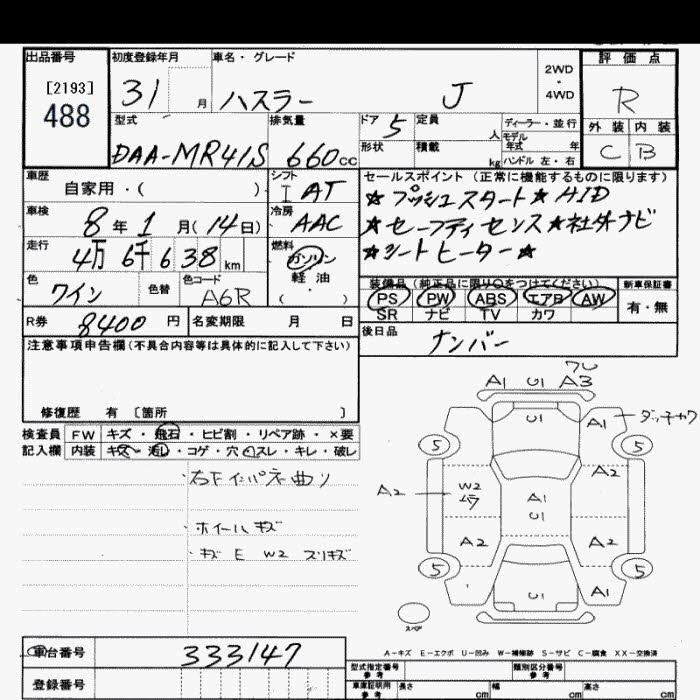 出品番号 初度登録年月 車名・グレード 2WD・4WD 評価点
[2193]
488
31 月 ハスラー J R
型式 排気量 ドア 5 定員 人 ディーラー・並行 外装 内装
モデル年式 年
DAA-MR41S 660cc 形状 積載 kg ハンドル 左・右 C B
車歴 自家用・( ) シフト I AT セールスポイント(正常に機能するものに限ります)
★プッシュスタート★HID
車検 8年 1月(14日) 冷房 AAC ★セーフティセンス★社外ナビ
走行 4万 6千 6 38 km 燃料 ガソリン 軽油 ( ・ ) ★シートヒーター★
色 ワイン 色替 色コード A6R 装備品(純正品に限り○をつけてください) 新車保証書
PS PW ABS エアB AW 有・無
SR ナビ TV カワ
R券 8400 円 名変期限 月 日 後日品 ナンバー
注意事項申告欄(不具合内容等は具体的に記入して下さい)
修復歴 有 〔箇所 〕
検査員 FW キズ・飛石・ヒビ割・リペア跡・×要
記入欄 内装 キズ・汚レ・コゲ・穴・スレ・キレ・破レ
・右Fインパネ曲り
・ホイールキズ
・キズ E W2 スリキズ
A1 U1 A3
U1 A1 ダッチャク
5 5
A2 W2 A1 A2
U1
A2 A2
5 5
U1 A1
スペア
A-キズ E-エクボ U-凹み W-補修跡 S-サビ C-腐食 XX-交換済
車台番号 333147
型式指定番号 参考 類別区分番号 参考
登録番号 車庫証明用 参考 長さ cm 幅 cm 高さ cm